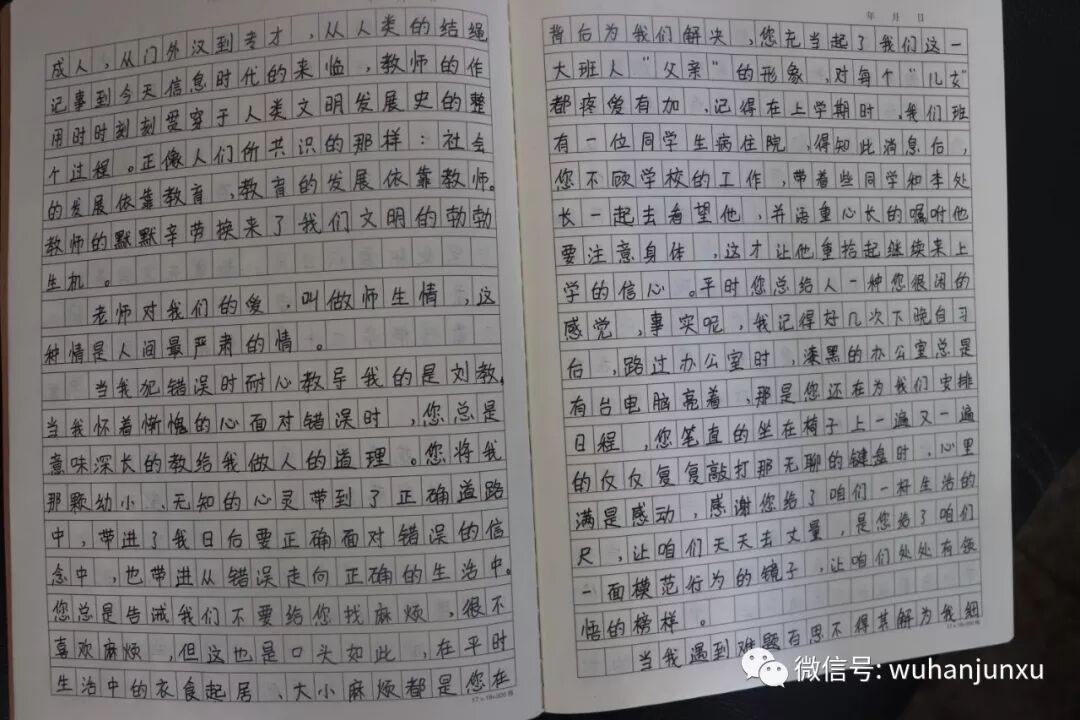 成人，从门外汉到专才，从人类的结绳
记事到今天信息时代的来临，教师的作
用时时刻刻贯穿于人类文明发展史的整
个过程。正像人们所共识的那样：社会
的发展依靠教育，教育的发展依靠教师。
教师的默默辛劳换来了我们文明的勃勃
生机。
老师对我们的爱，叫做师生情，这
种情是人间最严肃的情。
当我犯错误时耐心教导我的是刘教，
当我怀着惭愧的心面对错误时，您总是
意味深长的教给我做人的道理。您将我
那颗幼小、无知的心灵带到了正确道路
中，带进了我日后要正确面对错误的信
念中，也带进从错误走向正确的生活中。
您总是告诫我们不要给您找麻烦，很不
喜欢麻烦，但这也是口头如此，在平时
生活中的衣食起居、大小麻烦都是您在
17×18=306格
年 月 日
背后为我们解决，您充当起了我们这一
大班人“父亲”的形象，对每个“儿女”
都疼爱有加，记得在上学期时，我们班
有一位同学生病住院，得知此消息后，
您不顾学校的工作，带着些同学和李处
长一起去看望他，并语重心长的嘱咐他
要注意身体，这才让他重拾起继续来上
学的信心。平时您总给人一种您很闲的
感觉，事实呢，我记得好几次下晚自习
后，路过办公室时，漆黑的办公室总是
有台电脑亮着，那是您还在为我们安排
日程，您笔直的坐在椅子上一遍又一遍
的反反复复敲打那无聊的键盘时，心里
满是感动，感谢您给了咱们一好生活的
尺，让咱们天天去丈量，是您给了咱们
一面模范行为的镜子，让咱们处处有领
悟的榜样。
当我遇到难题百思不得其解为我细
17×18=306格
微信号: wuhanjunxu